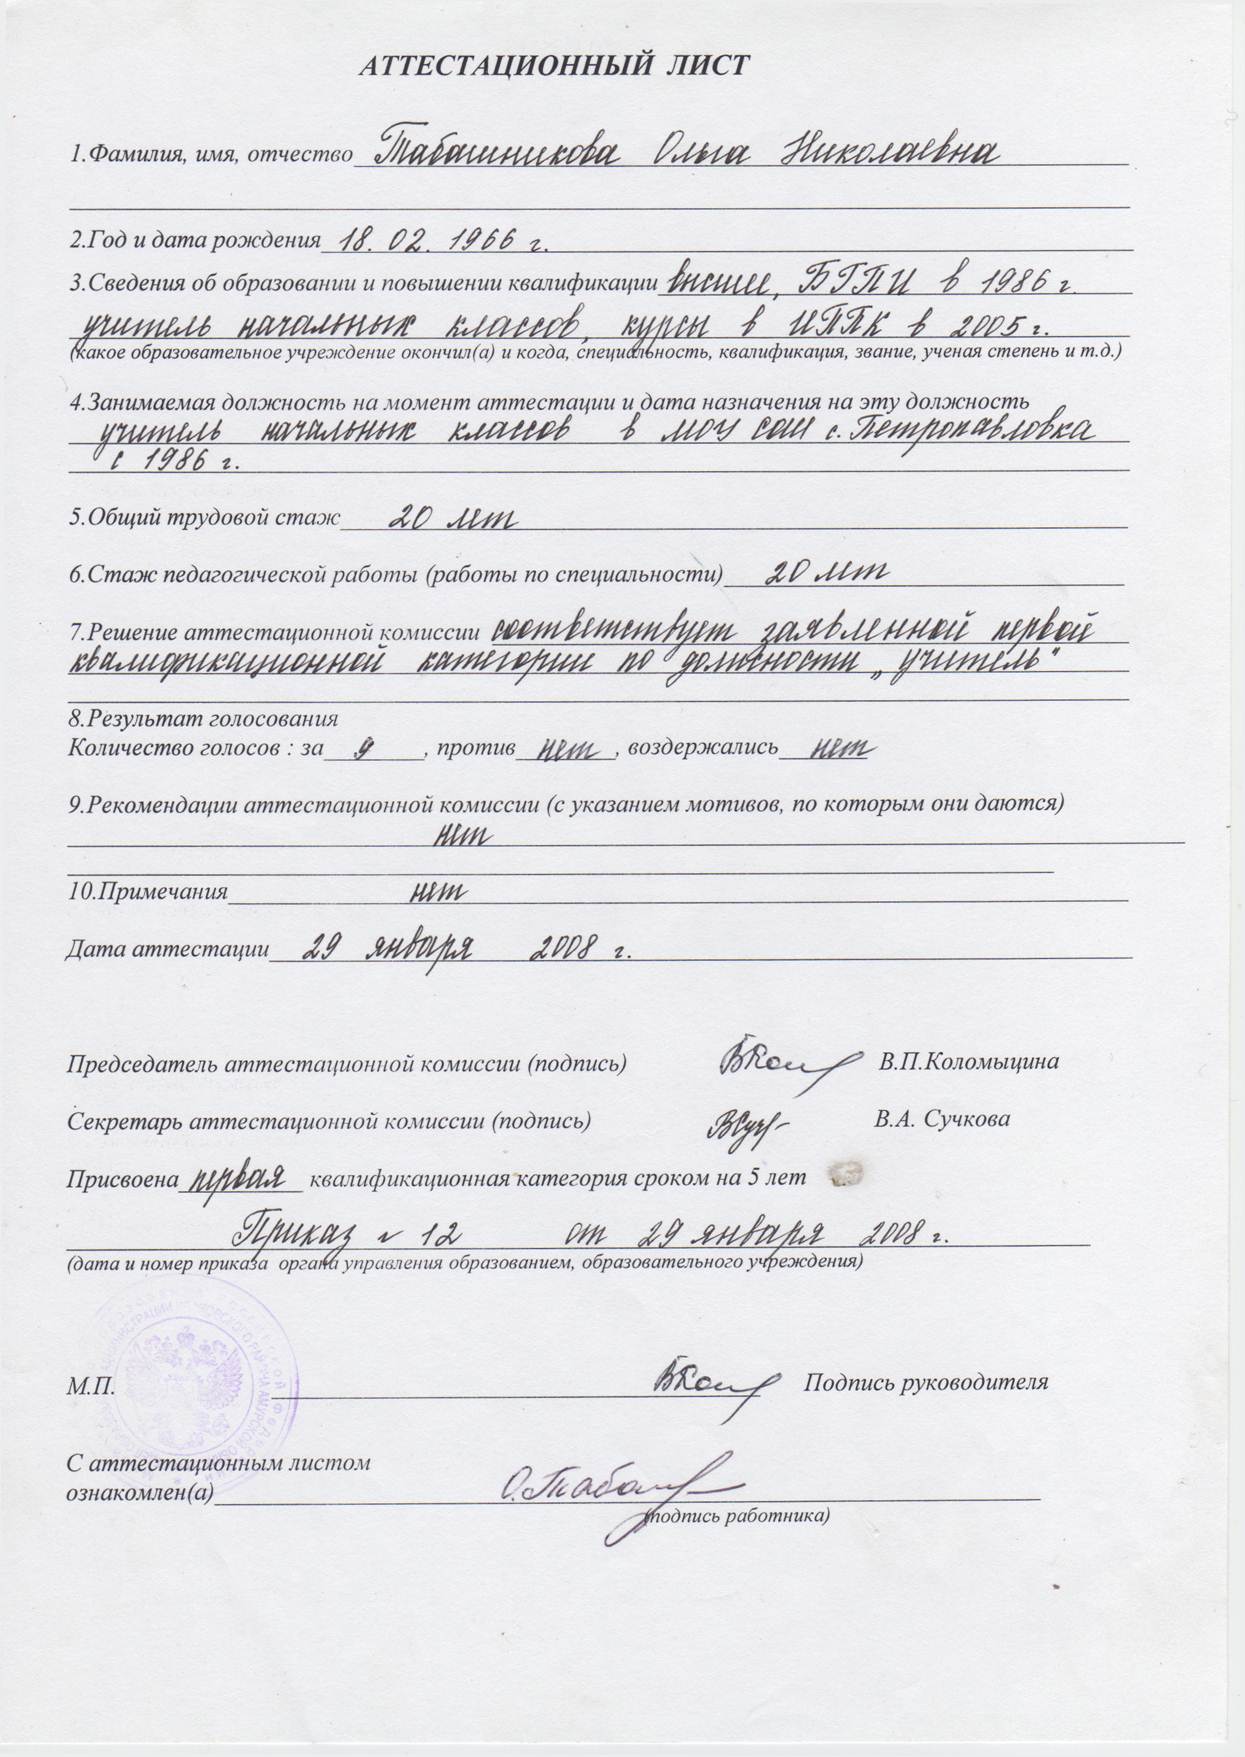 АТТЕСТАЦИОННЫЙ ЛИСТ
1.Фамилия, имя, отчество Табашникова Ольга Николаевна
2.Год и дата рождения 18. 02. 1966 г.
3.Сведения об образовании и повышении квалификации высшее, БГПИ в 1986 г.
учитель начальных классов, курсы в ИППК в 2005 г.
(какое образовательное учреждение окончил(а) и когда, специальность, квалификация, звание, ученая степень и т.д.)
4.Занимаемая должность на момент аттестации и дата назначения на эту должность
учитель начальных классов в МОУ СОШ с. Петропавловка
с 1986 г.
5.Общий трудовой стаж 20 лет
6.Стаж педагогической работы (работы по специальности) 20 лет
7.Решение аттестационной комиссии соответствует заявленной первой
квалификационной категории по должности „учитель"
8.Результат голосования
Количество голосов : за 9 , против нет , воздержались нет
9.Рекомендации аттестационной комиссии (с указанием мотивов, по которым они даются)
нет
10.Примечания нет
Дата аттестации 29 января 2008 г.
Председатель аттестационной комиссии (подпись) В.П.Коломыцина
Секретарь аттестационной комиссии (подпись) В.А. Сучкова
Присвоена первая квалификационная категория сроком на 5 лет
Приказ № 12 от 29 января 2008 г.
(дата и номер приказа органа управления образованием, образовательного учреждения)
М.П. Подпись руководителя
С аттестационным листом
ознакомлен(а) О.Таба
(подпись работника)